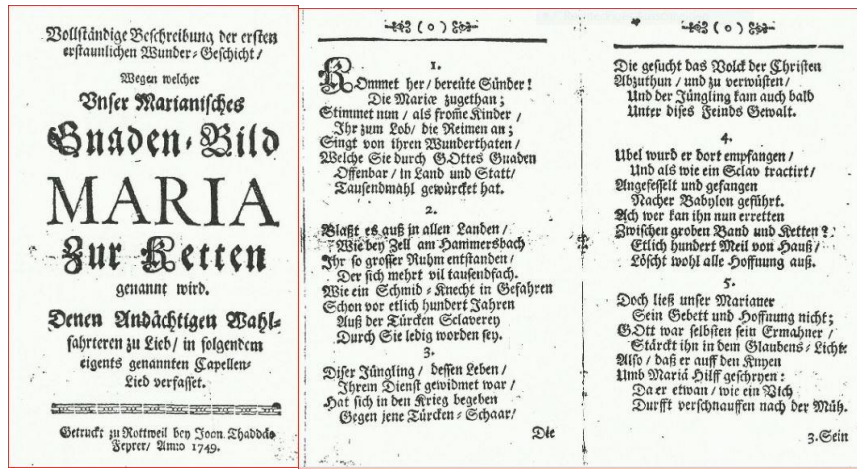 Vollständige Beschreibung der ersten
erstaunlichen Wunder-Geschicht/
Wegen welcher
Unser Marianisches
Gnaden-Bild
MARIA
Zur Ketten
genannt wird.
Denen Andächtigen Wahl-
fahrteren zu Lieb/ in folgendem
eigents genannten Capellen-
Lied verfasset.
Getruckt zu Rottweil bey Joon. Thaddäo
Feyrer/ Anno 1749.
( o )
1.
KOmmet her/ bereüte Sünder!
Die Mariæ zugethan;
Stimmet nun/ als from̄e Kinder/
Ihr zum Lob/ die Reimen an;
Singt von ihren Wunderthaten/
Welche Sie durch GOttes Gnaden
Offenbar/ in Land und Statt/
Tausendmahl gewürcket hat.
2.
Blaßt es auß in allen Landen/
Wie bey Zell am Hammersbach
Ihr so grosser Ruhm entstanden/
Der sich mehrt vil tausendfach.
Wie ein Schmid-Knecht in Gefahren
Schon vor etlich hundert Jahren
Auß der Türcken Sclaverey
Durch Sie ledig worden sey.
3.
Diser Jüngling/ dessen Leben/
Ihrem Dienst gewidmet war/
Hat sich in den Krieg begeben
Gegen jene Türcken-Schaar/
Die
( o )
Die gesucht das Volck der Christen
Abzuthun/ und zu verwüsten/
Und der Jüngling kam auch bald
Unter dises Feinds Gewalt.
4.
Ubel wurd er dort empfangen/
Und als wie ein Sclav tractirt/
Angefesselt und gefangen
Nacher Babylon geführt.
Ach wer kan ihn nun erretten
Zwischen groben Band und Ketten?
Etlich hundert Meil von Hauß/
Löscht wohl alle Hoffnung auß.
5.
Doch ließ unser Marianer
Sein Gebett und Hoffnung nicht;
GOtt war selbsten sein Ermahner/
Stärckt ihn in dem Glaubens-Lichte
Also/ daß er auff den Knyen
Umb Mariä Hilff geschryen:
Da er etwan/ wie ein Vich
Durfft verschnauffen nach der Müh.
3.Sein